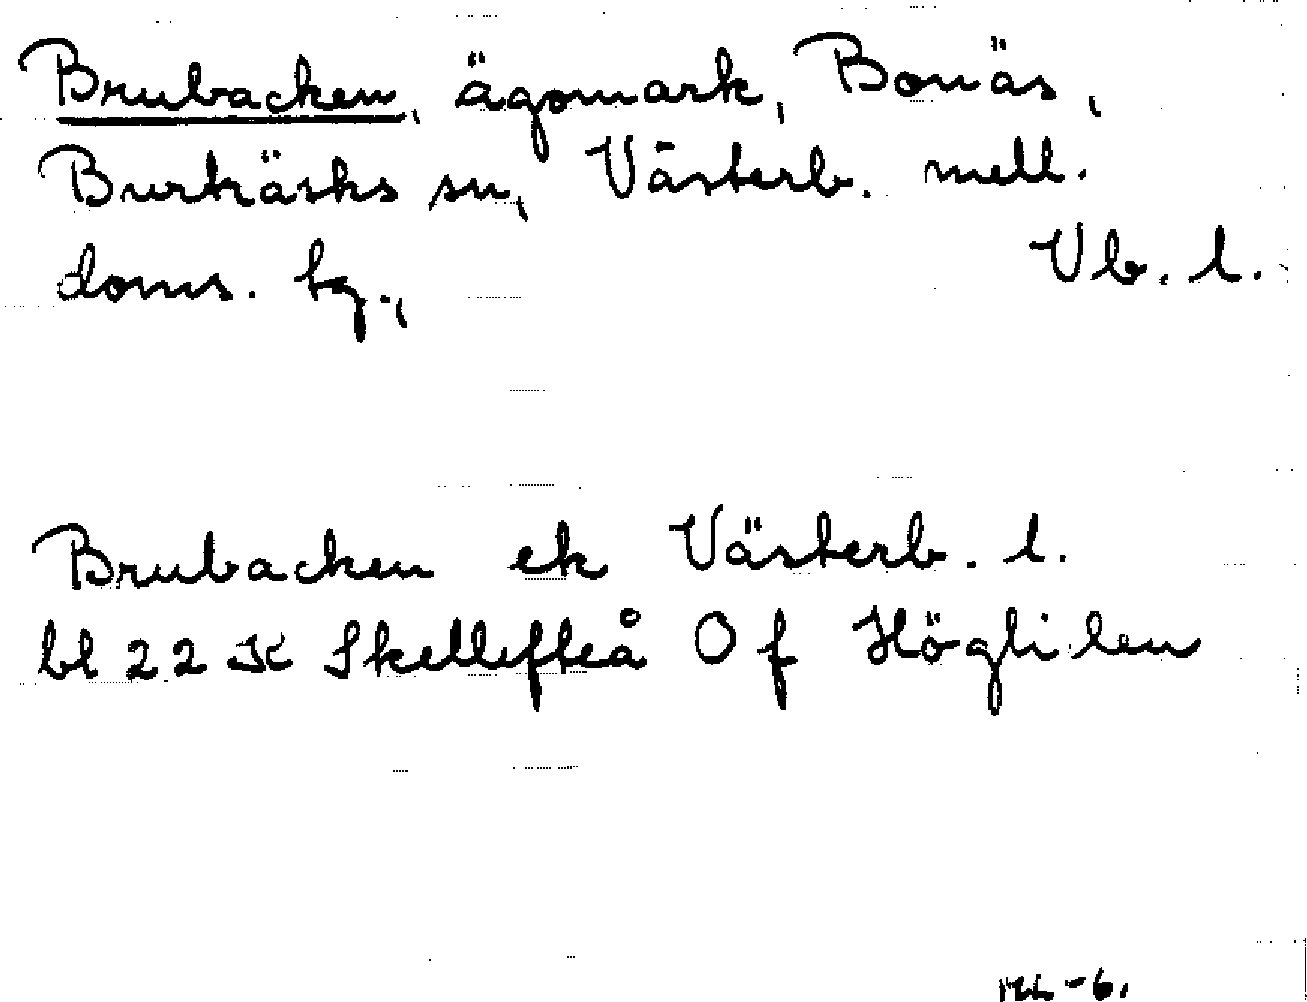 Brubacken, ägomark, Bonäs,
Burträsks sn, Västerb. mell.
doms. tg., Vb. l.
Brubacken ek Västerb. l.
bl 22 K Skellefteå O f Högliden